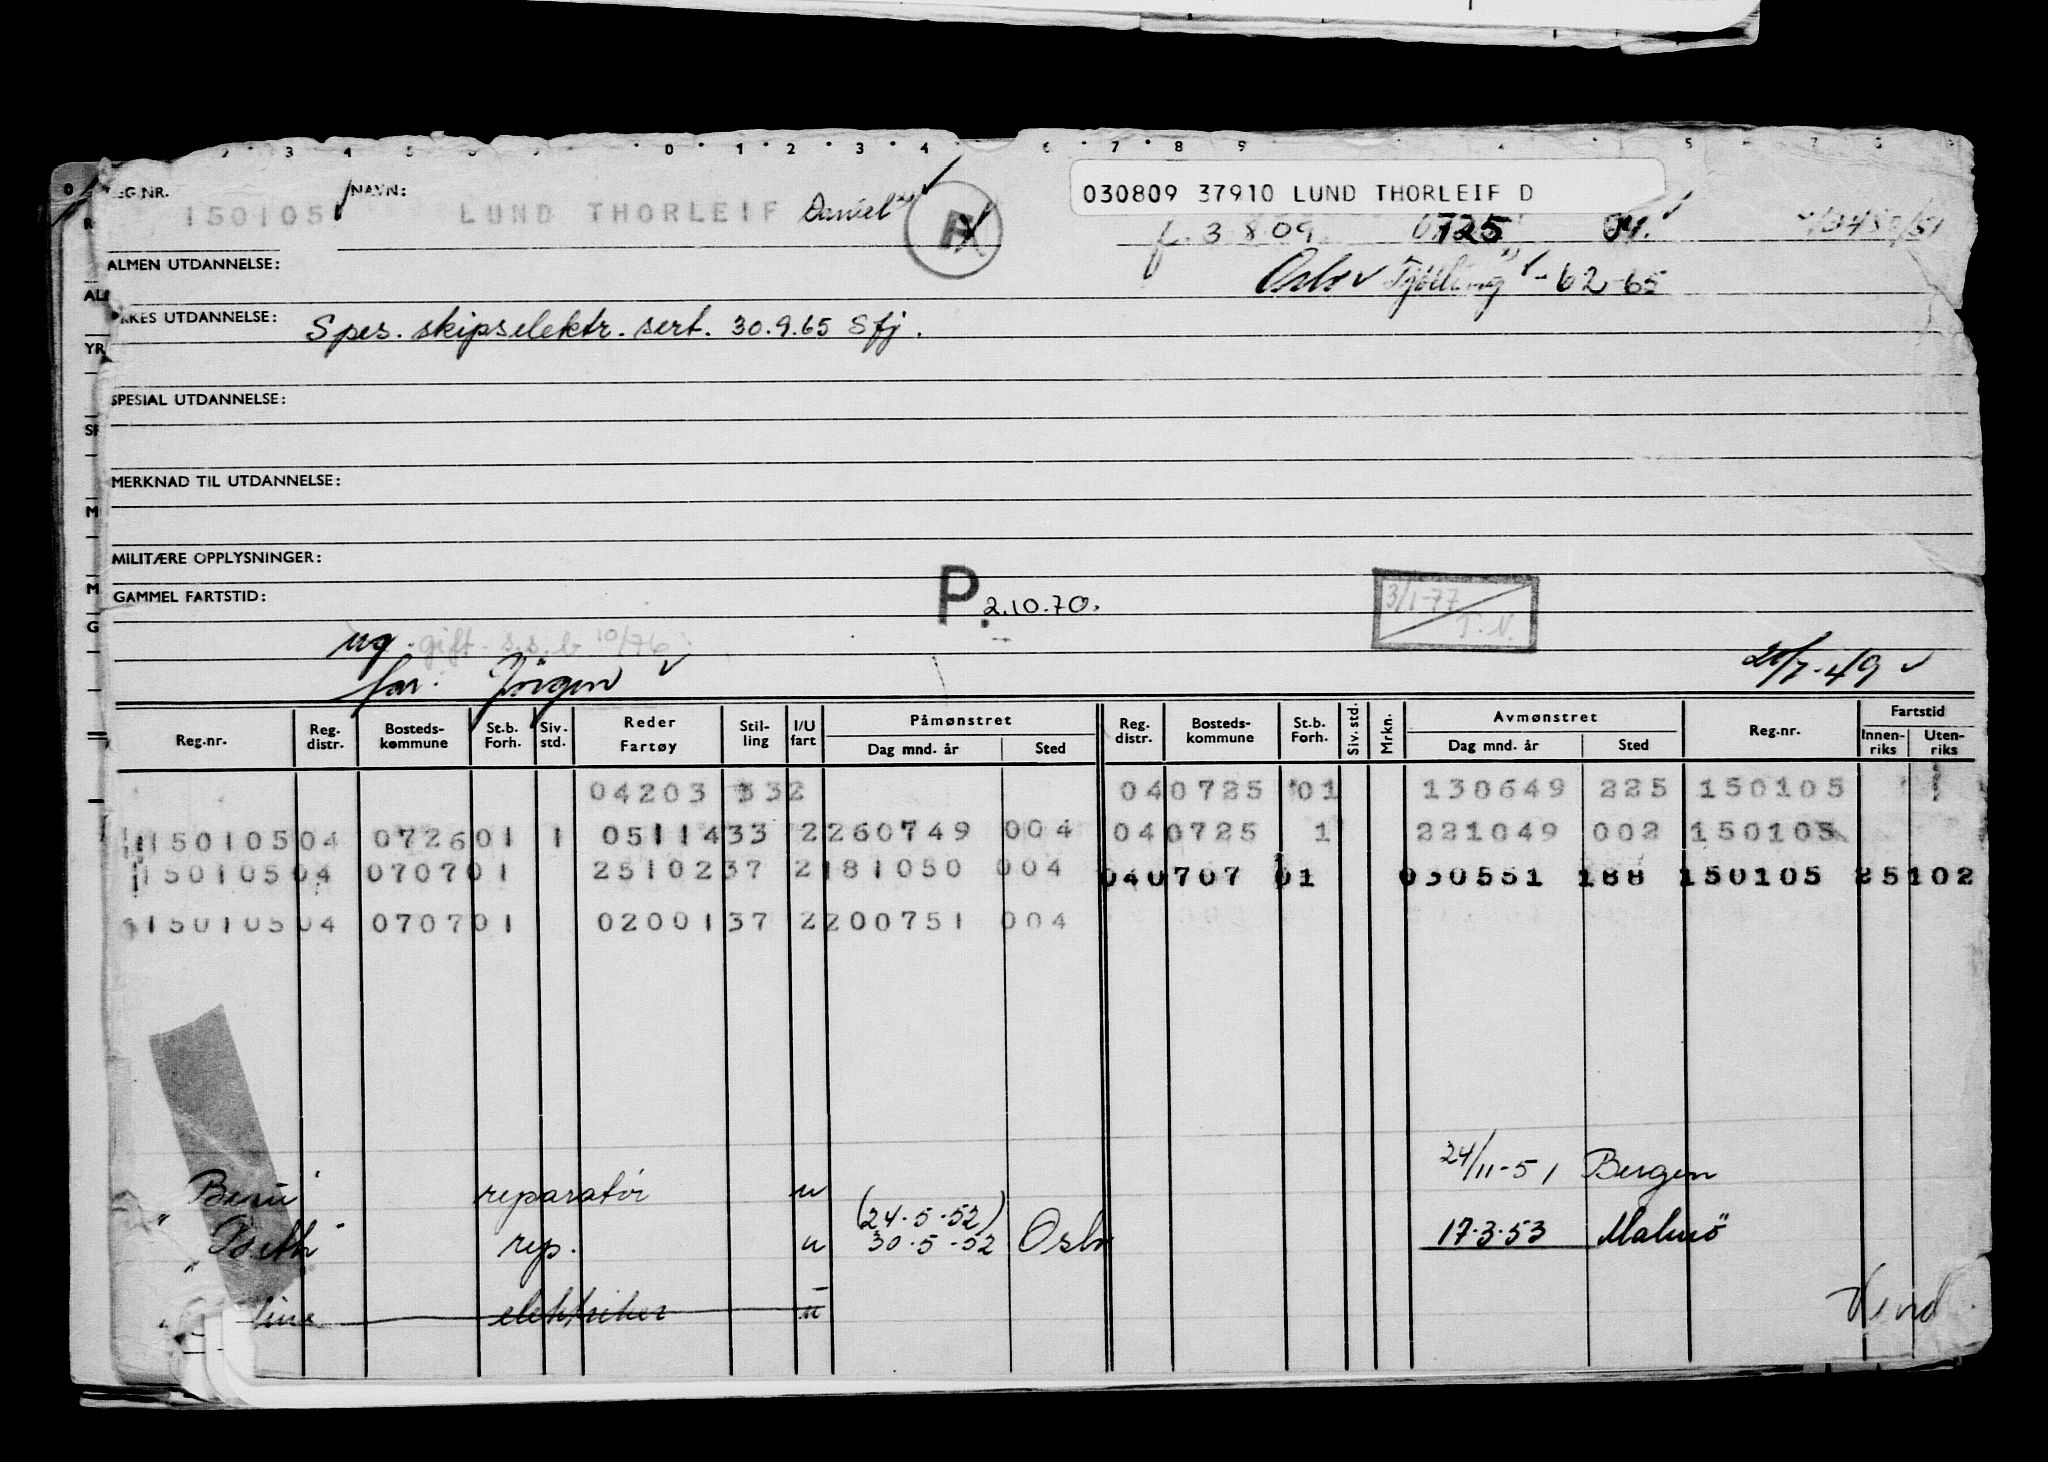 030809 37910 LUND THORLEIF D
REG.NR. NAVN:
150105 LUND THORLEIF Daniel
f. 3 8 09 0725 04.
ALMEN UTDANNELSE:
Oslo Tjølling - 62 - 65
YRKES UTDANNELSE: Spes. skipselektr. sert. 30.9.65 Sfj.
SPESIAL UTDANNELSE:
MERKNAD TIL UTDANNELSE:
MILITÆRE OPPLYSNINGER:
GAMMEL FARTSTID: P. 2.10.70. 3/1-77 T.N.
ug. gift. s.s.b 10/76
far. Jörgen 20/7-49
Reg.nr. Reg. distr. Bosteds-kommune St.b. Forh. Siv. std. Reder Fartøy Stil-ling I/U fart Påmønstret Dag mnd. år Sted Reg. distr. Bosteds-kommune St.b. Forh. Siv. std. Mrkn. Avmønstret Dag mnd. år Sted Reg.nr. Fartstid Innen-riks Uten-riks
04203 332 040725 01 130649 225 150105
150105 04 0726 01 1 05114 33 2 260749 004 040725 1 221049 002 150105
150105 04 0707 01 25102 37 2 181050 004 040707 01 030551 188 150105 25102
150105 04 0707 01 02001 37 2 200751 004
24/11-51 Bergen
"Beru" reparatør u
(24.5.52)
rep. u 30.5.52 Oslo 17.3.53 Malmö
elektriker u
Vend